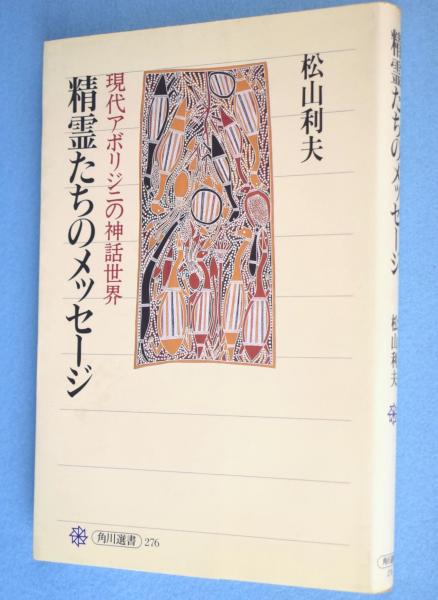 松山利夫
現代アボリジニの神話世界
精霊たちのメッセージ
角川選書 276
精霊たちのメッセージ
松山利夫
角川選書